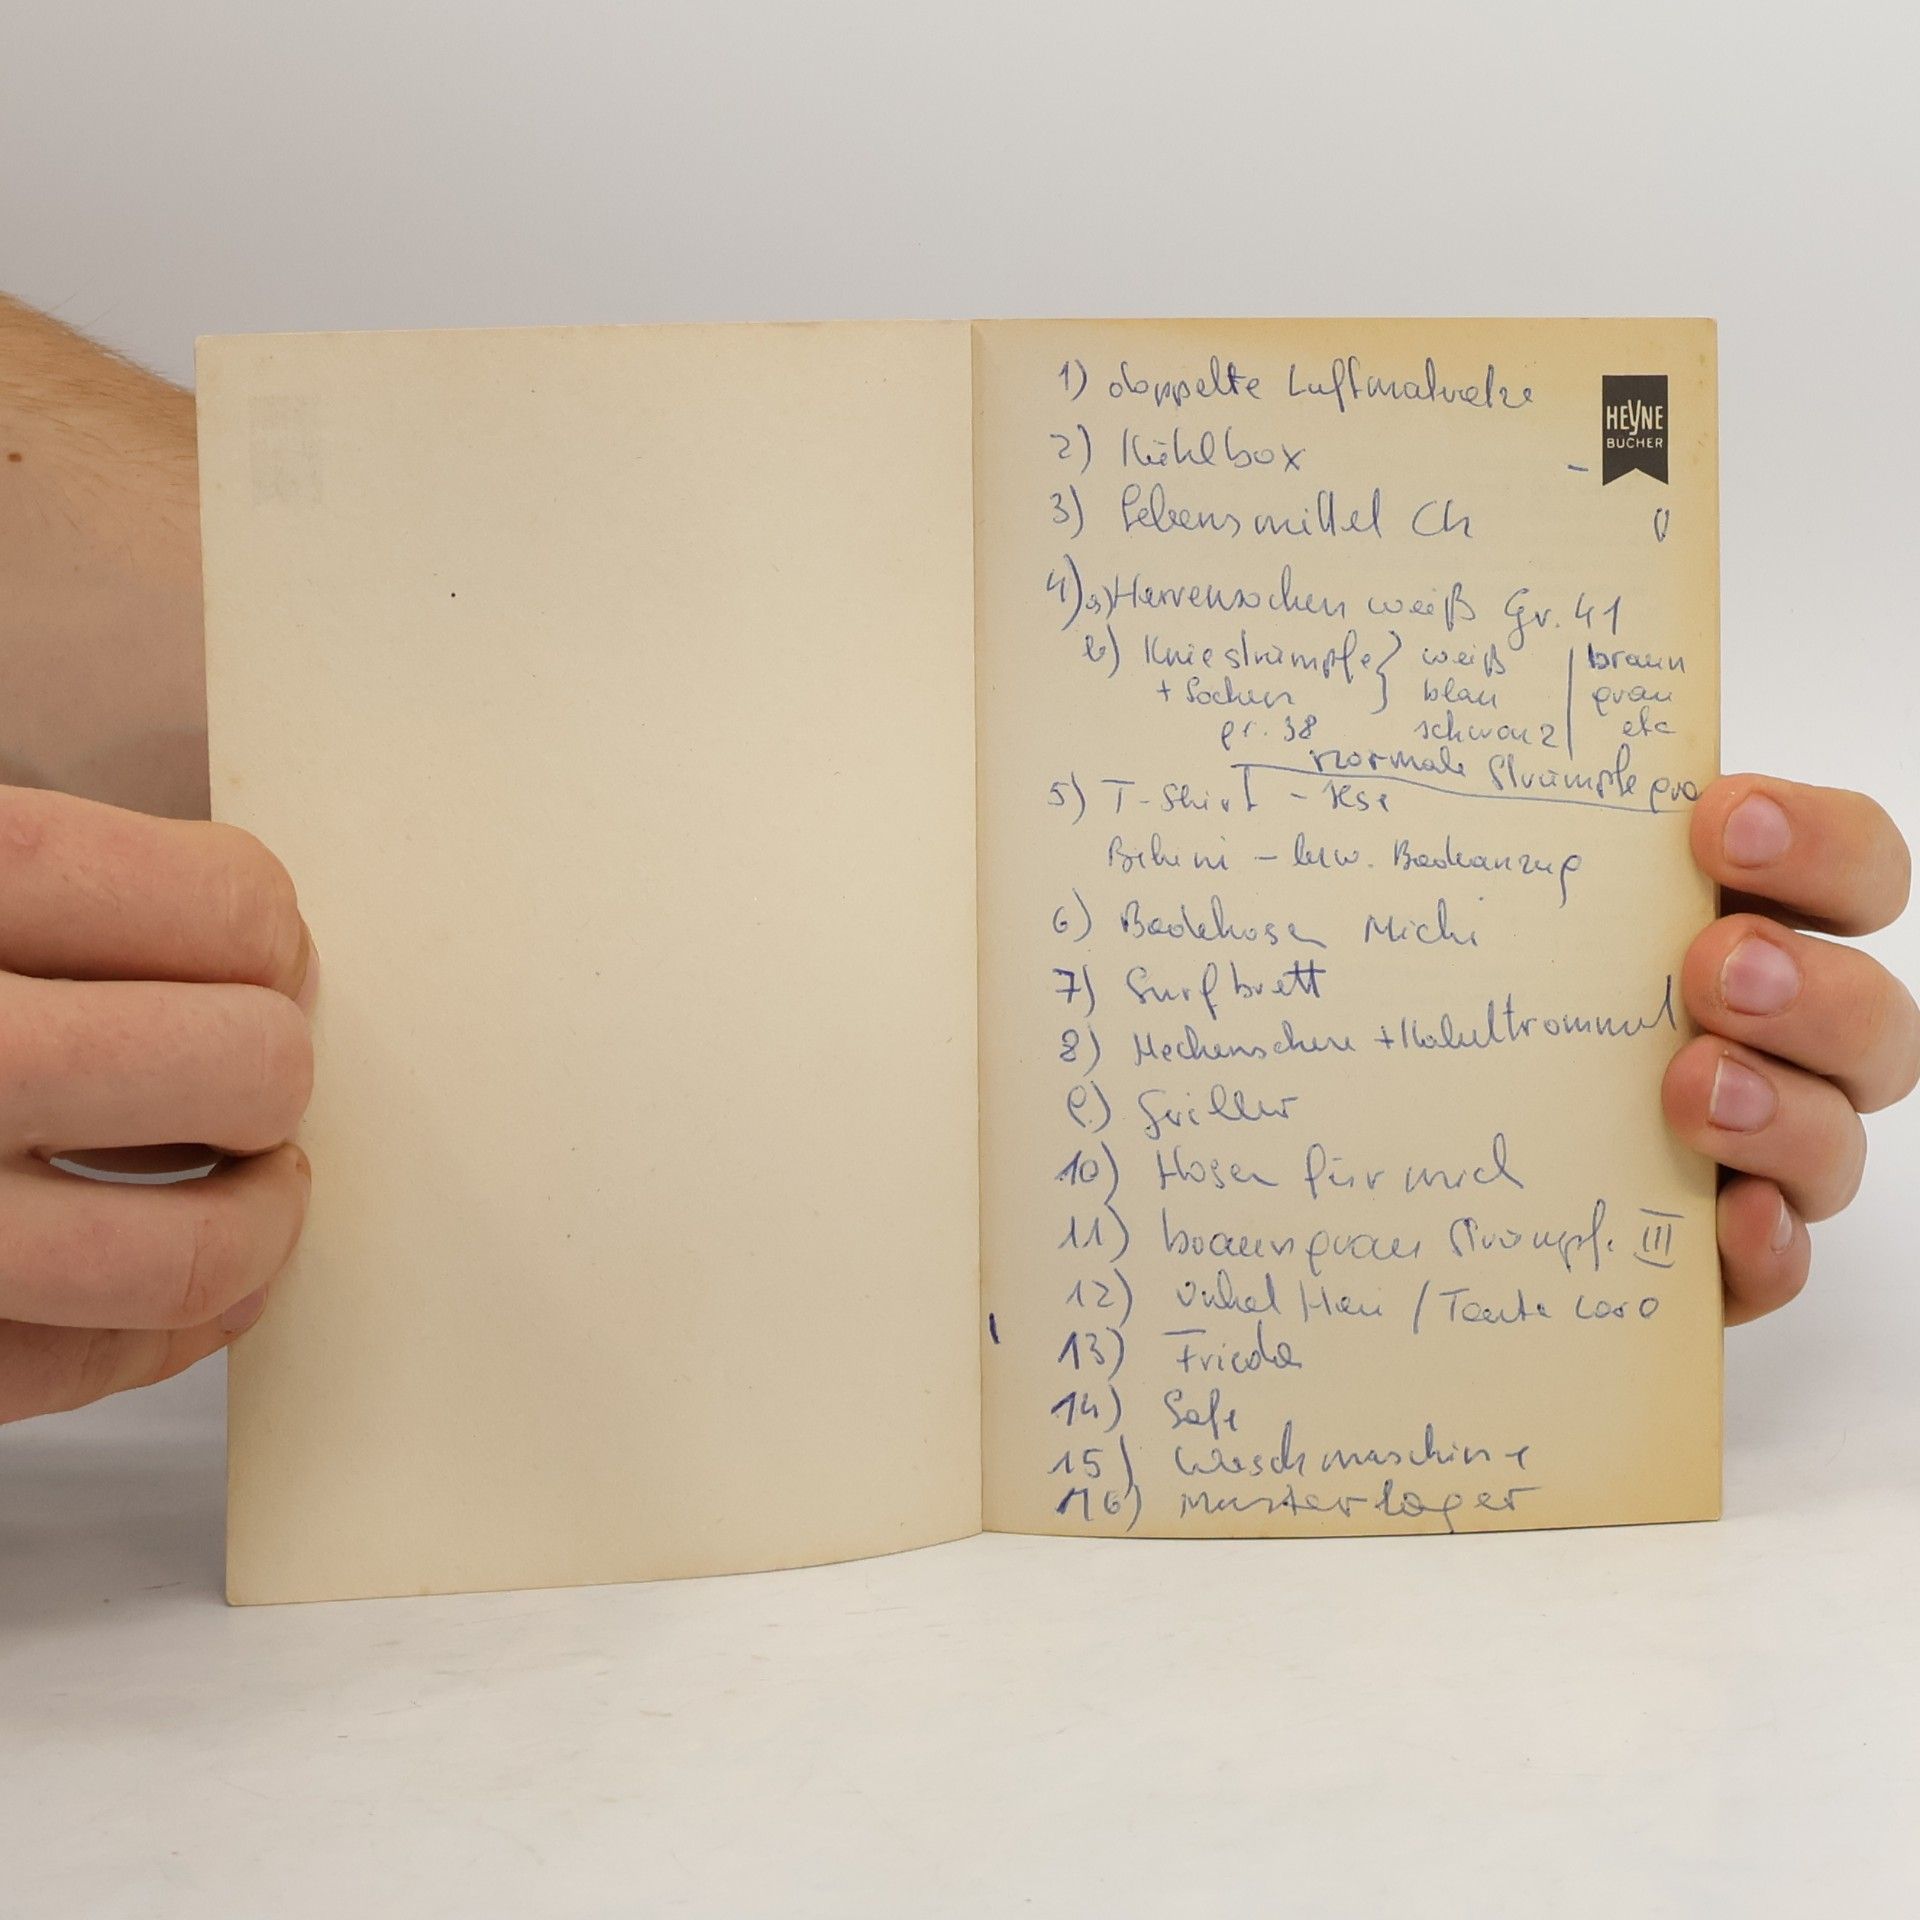 1) doppelte Luftmatratze
HEYNE
BÜCHER
2) Kühlbox
3) Lebensmittel Ch
4) a) Herrensocken weiß Gr. 41
b) Kniestrümpfe } weiß | braun
+ Socken blau | grau
gr. 38 schwarz | etc
normale Strümpfe
5) T-Shirt -
Bikini - bzw. Badeanzug
6) Badehosen Michi
7) Surfbrett
8) Heckenschere + Kabeltrommel
9) Griller
10) Hosen für mich
11) braungrau Strümpfe III
12) Onkel / Tante
13) Frieda
14) Safe
15) Waschmaschine
16) Musterlager